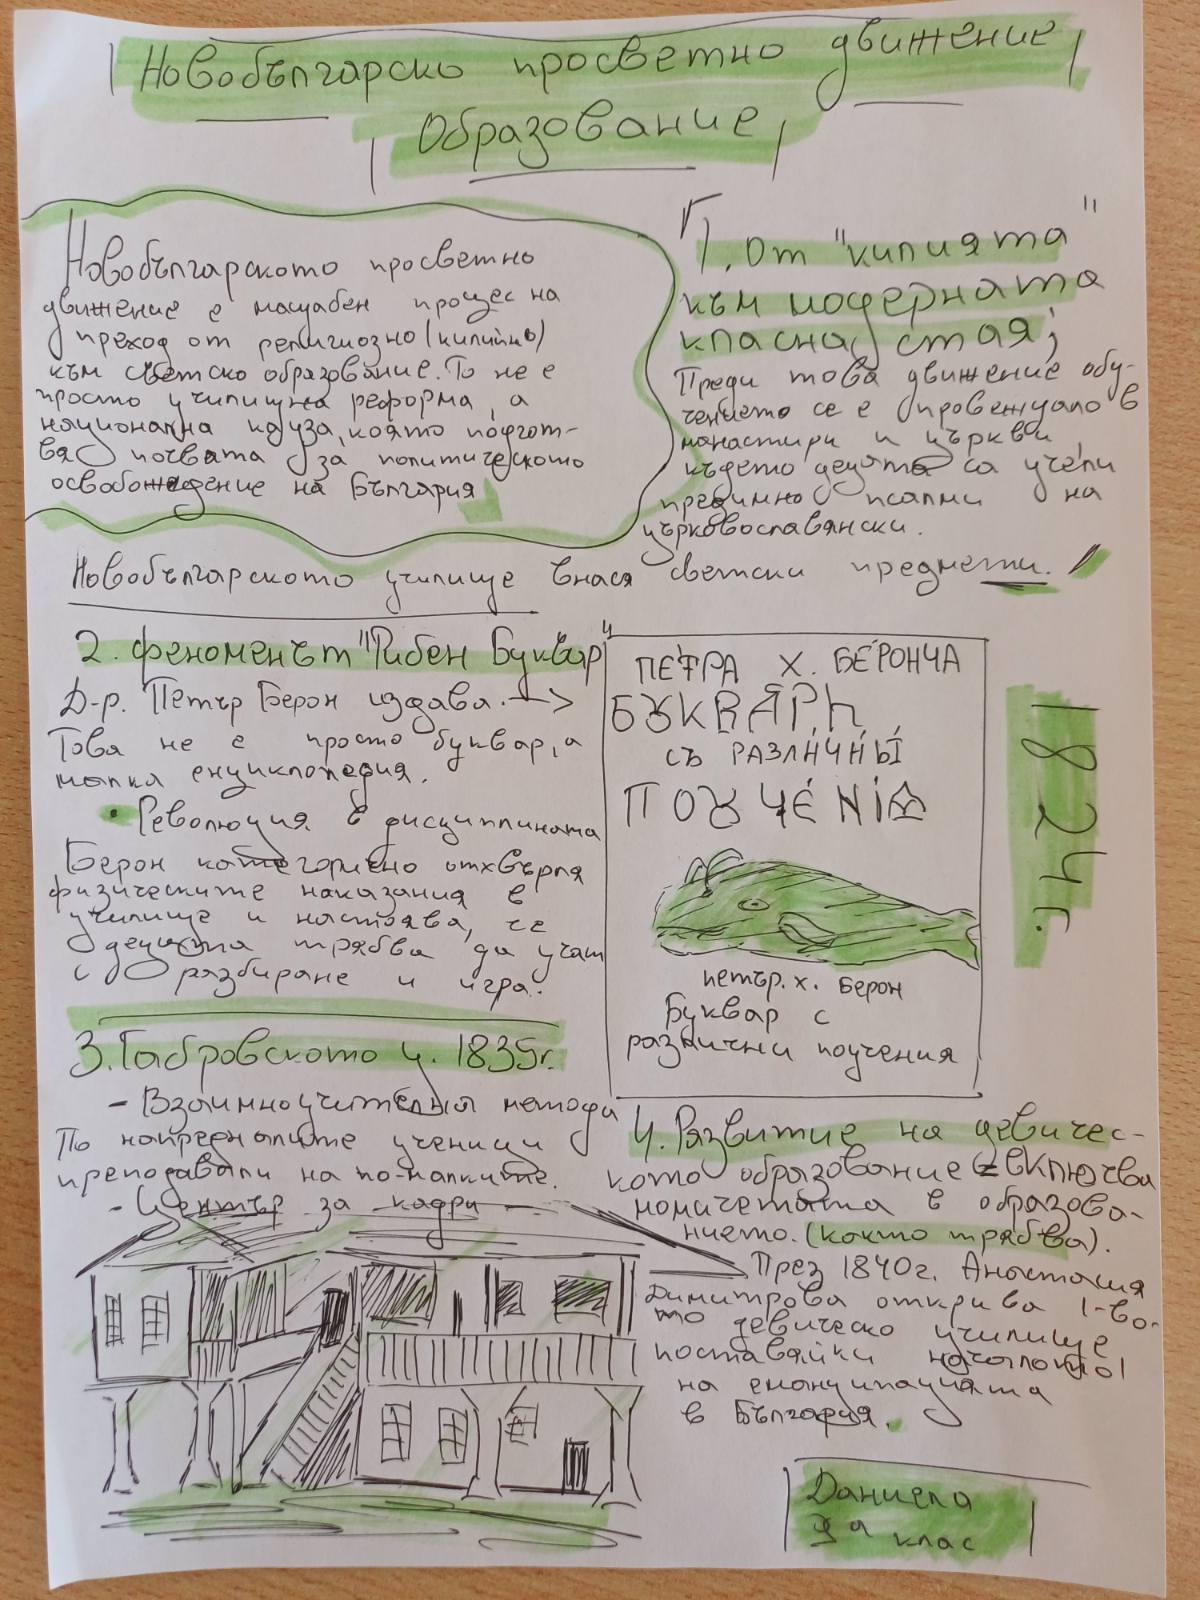 Новобългарско просветно движение
Образование
Новобългарското просветно
движение е мащабен процес на
преход от религиозно (килийно)
към светско образование. То не е
просто училищна реформа, а
национална кауза, която подгот-
вя почвата за политическото
освобождение на България
1. От "килията"
към модерната
класна стая;
Преди това движение обу-
чението се е провеждало в
манастири и църкви,
където децата са учели
предимно псалми на
църковославянски.
Новобългарското училище внася светски предмети.
2. Феноменът "Рибен Буквар"
Д-р. Петър Берон издава. →
Това не е просто буквар, а
малка енциклопедия.
• Революция в дисциплината
Берон категорично отхвърля
физическите наказания в
училище и настоява, че
децата трябва да учат
с разбиране и игра.
ПЕТРА Х. БЕРОНЧА
БУКВАРЬ
СЪ РАЗЛИЧНЫ
ПОУЧЕНІЯ
петър. х. Берон
Буквар с
различни поучения
1824г.
3. Габровското у. 1835г.
- Взаимноучителния метода
По напредналите ученици
преподавали на по-малките.
- Център за кадри
4. Развитие на девичес-
кото образование = включва
момичетата в образова-
нието. (както трябва).
През 1840г. Анастасия
Димитрова открива 1-во-
то девическо училище
поставяйки началото
на еманципацията
в България.
Даниела
9а клас